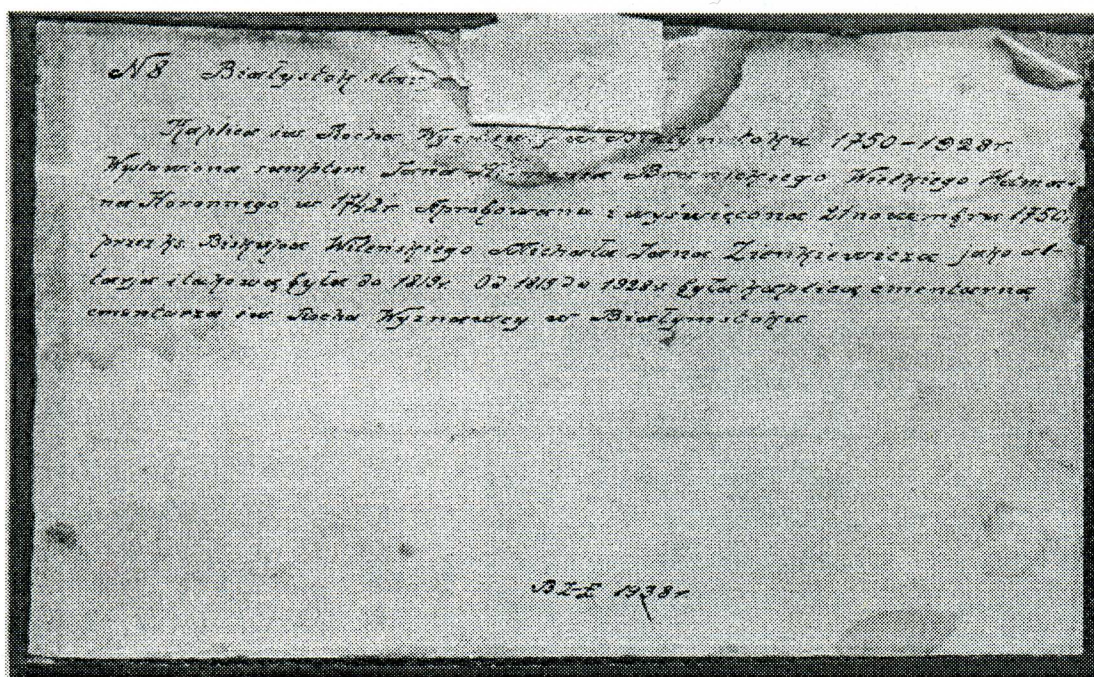 N 8 Białystok star
Kaplica św Rocha Wyznawcy w Białymstoku 1750-1928r.
Wystawiona sumptem Jana Klemensa Branickiego Wielkiego Hetma-
na Koronnego w 1742r. Aprobowana i wyświęcona 21 novembra 1750r
przez ks. Biskupa Wileńskiego Michała Jana Zienkiewicza jako al-
tarja i takową była do 1819r. Od 1819 do 1928r. była kaplicą cmentarną
cmentarza św Rocha Wyznawcy w Białymstoku
1938r